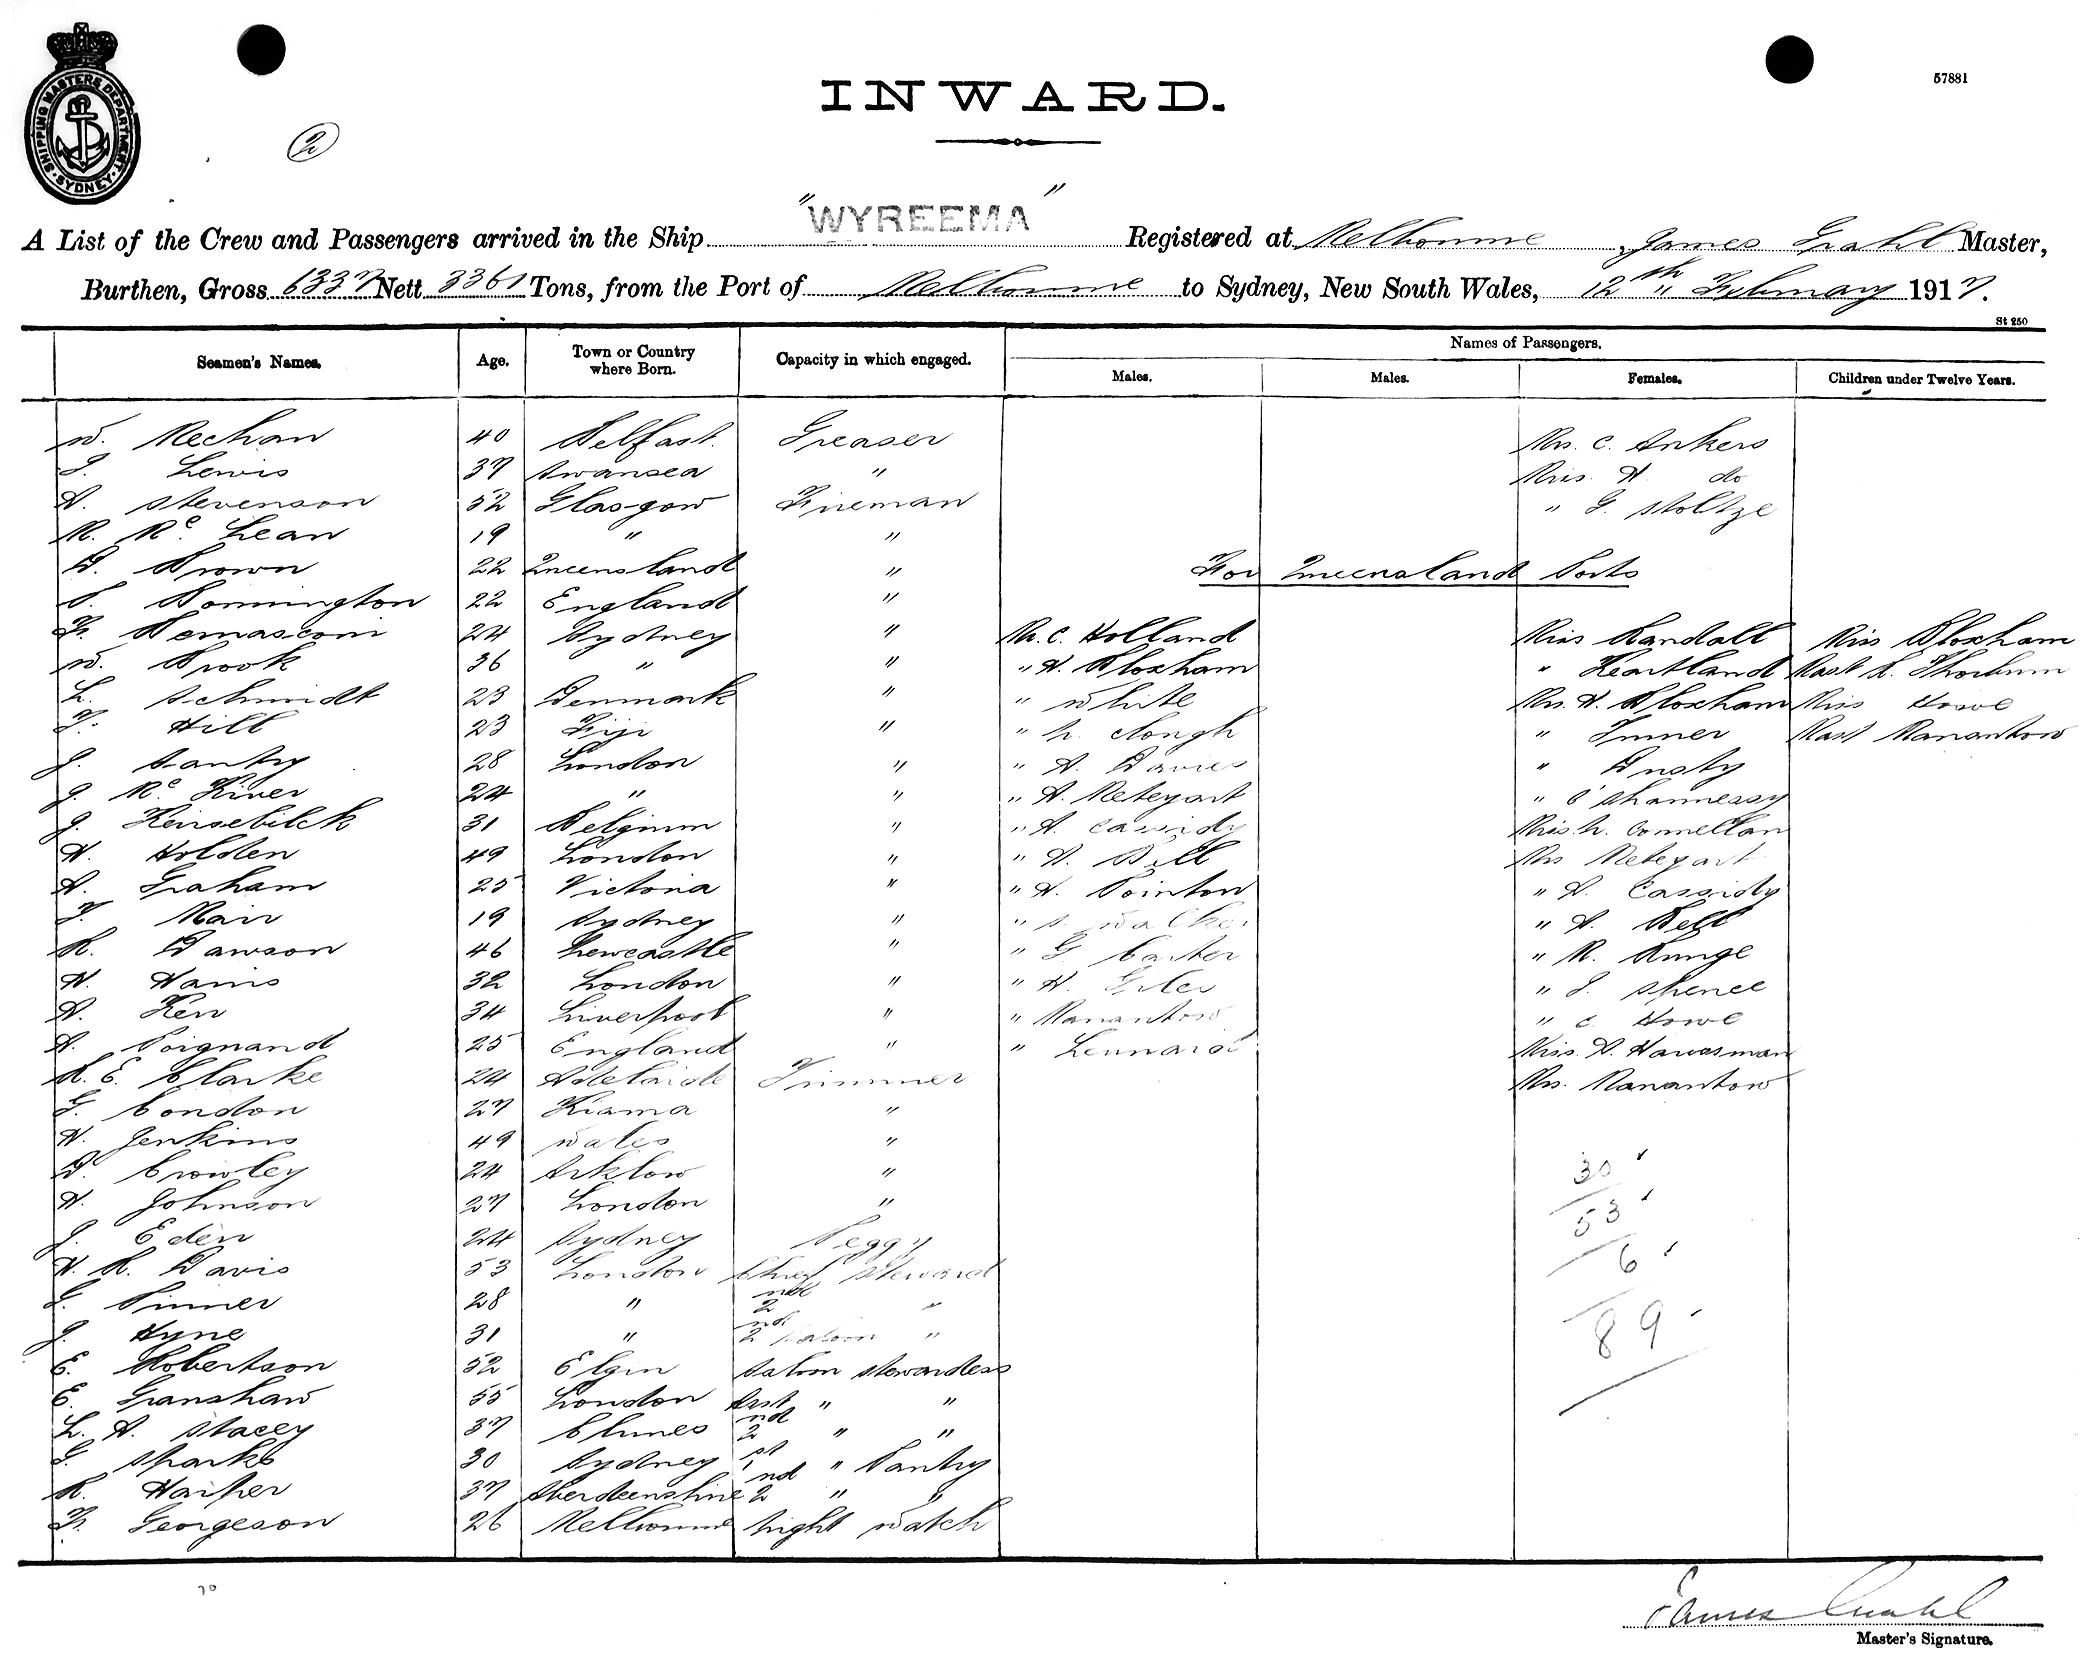 SHIPPING MASTERS DEPARTMENT. SYDNEY.
57881
INWARD.
2
A List of the Crew and Passengers arrived in the Ship "WYREEMA" Registered at Melbourne, James Grahl Master,
Burthen, Gross 6337 Nett 3361 Tons, from the Port of Melbourne to Sydney, New South Wales, 12th February 1917.
St 250
Seamen's Names. Age. Town or Country where Born. Capacity in which engaged. Names of Passengers.
Males. Males. Females. Children under Twelve Years.
W. Mechan 40 Belfast. Greaser Mrs. C. Ankers
J. Lewis 37 Swansea " Miss. H. do
A. Stevenson 52 Glasgow Fireman " G. Stoltze
R. Mc. Lean 19 " "
D. Brown 22 Queensland " For Queensland Ports
S. Bonnington 22 England "
F. Bernasconi 24 Sydney " Mr. C. Holland Miss Randall Miss Bloxham
W. Brook 36 " " " H. Bloxham " Heartland Mast. R. Thorburn
L. Schmidt 23 Denmark " " White Mrs. H. Bloxham Miss Howe
T. Hill 23 Fiji " " N. Clough " Turner Mast Manantow
J. Santry 28 London " " A. Davies " Dusty
J. Mc. Kiver 24 " " " A. Meteyart " O'Shannessy
J. Keirsebilck 31 Belgium " " A. Cassidy Miss. N. Connellan
H. Holden 49 London " " A. Bell Mrs Meteyart
A. Graham 25 Victoria " " H. Pointon " A. Cassidy
T. Mair 19 Sydney " " S. Walker " A. Bell
R. Dawson 46 Newcastle " " G Carter " M. Runge
H. Harris 32 London " " H. Giles " J. Spence
A. Kerr 34 Liverpool " " Manantow " C. Howe
A. Poignand 25 England " " Lennard Miss. A. Hawesman
R. E. Clarke 24 Adelaide Trimmer Mrs. Manantow
G. Condon 27 Kiama "
H. Jenkins 49 Wales "
D. Crowley 24 Arklow " 30
H. Johnson 27 London " 53
J. Eden 24 Sydney Peggy
H. R. Davis 53 London Chief Steward 6
G. Pinner 28 " 2nd "
J. Hyne 31 " 2nd Saloon " 89
E. Robertson 52 Elgin Saloon Stewardess
E. Granshaw 55 London Asst " "
L. A. Stacey 37 Clunes 2nd " "
G. Sparks 30 Sydney 1st " Pantry
R. Harper 37 Aberdeenshire 2nd " "
F. Georgeson 26 Melbourne Night Watch
70
James Grahl
Master's Signature.